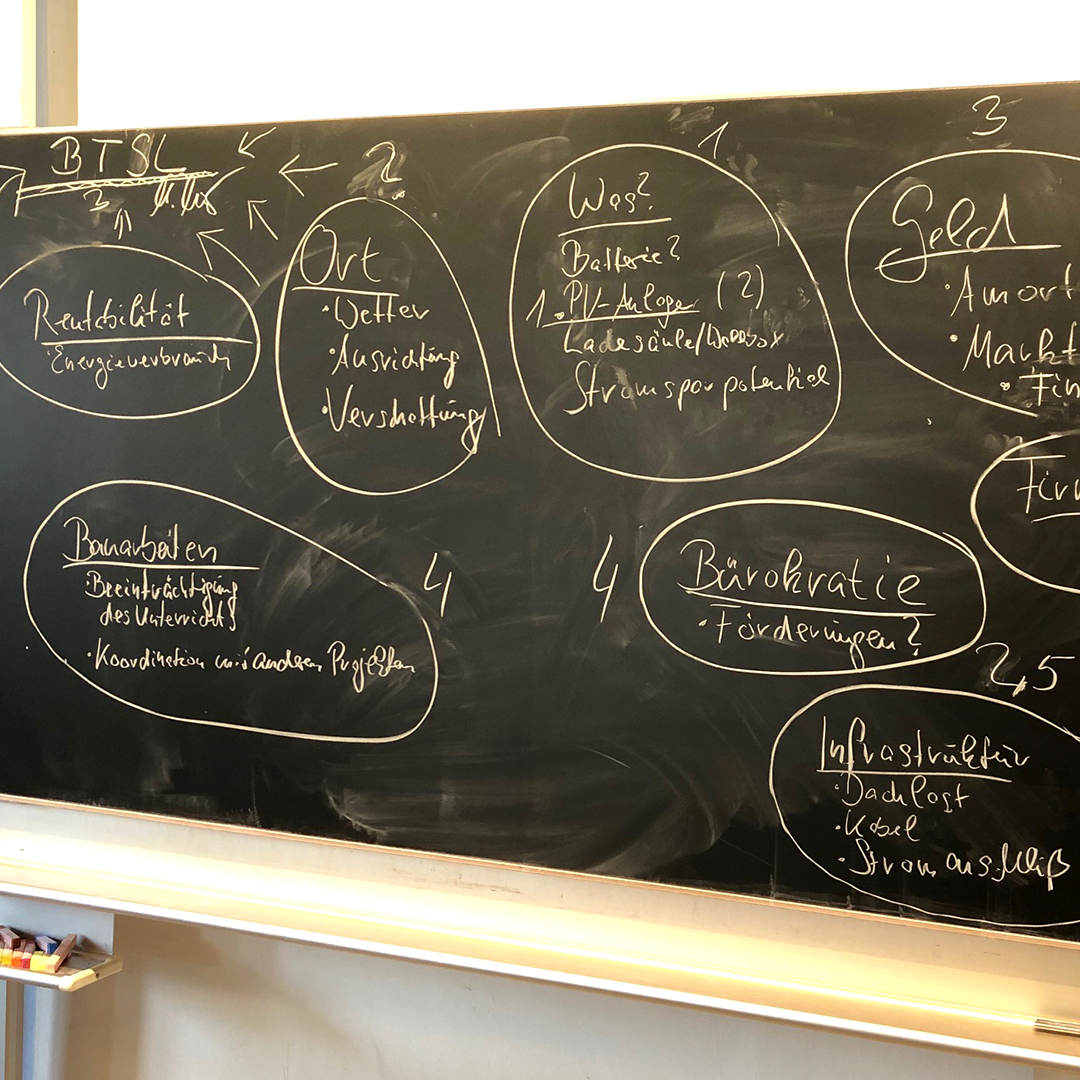 BTSL
2
Rentabilität
·Energieverbrauch
2.
Ort
·Wetter
·Ausrichtung
·Verschattung
1
Was?
Batterie?
1. PV-Anlage (2)
Ladesäule/Wallbox
Stromsparpotential
3
Geld
·Amort
·Markt
·Fin
Firm
Bauarbeiten
·Beeinträchtigung
des Unterrichts
·Koordination mit anderen Projekten
4
4
Bürokratie
·Förderungen?
2,5
Infrastruktur
·Dachlast
·Kabel